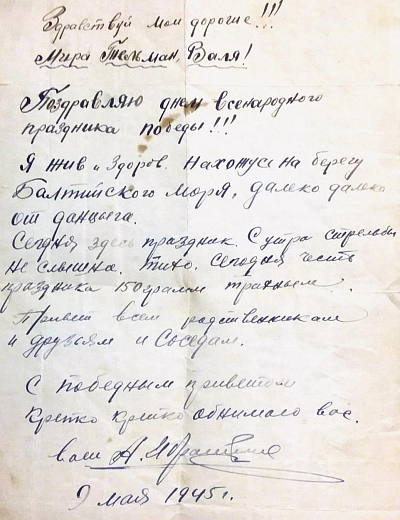 Здравствуй мои дорогие!!!
Мира Тельман, Валя!
Поздравляю днем всенародного
праздника победы!!!
Я жив и здоров. Нахожусь на берегу
Балтийского моря, далеко далеко
от данцыга.
Сегодня здесь праздник. С утра стрельбы
не слышна. Тихо. Сегодня честь
праздника 150 грамм
Привет всем родственникам
и друзьям и соседам.
С победным приветом
крепко крепко обнимаю вас.
ваш
9 мая 1945 г.